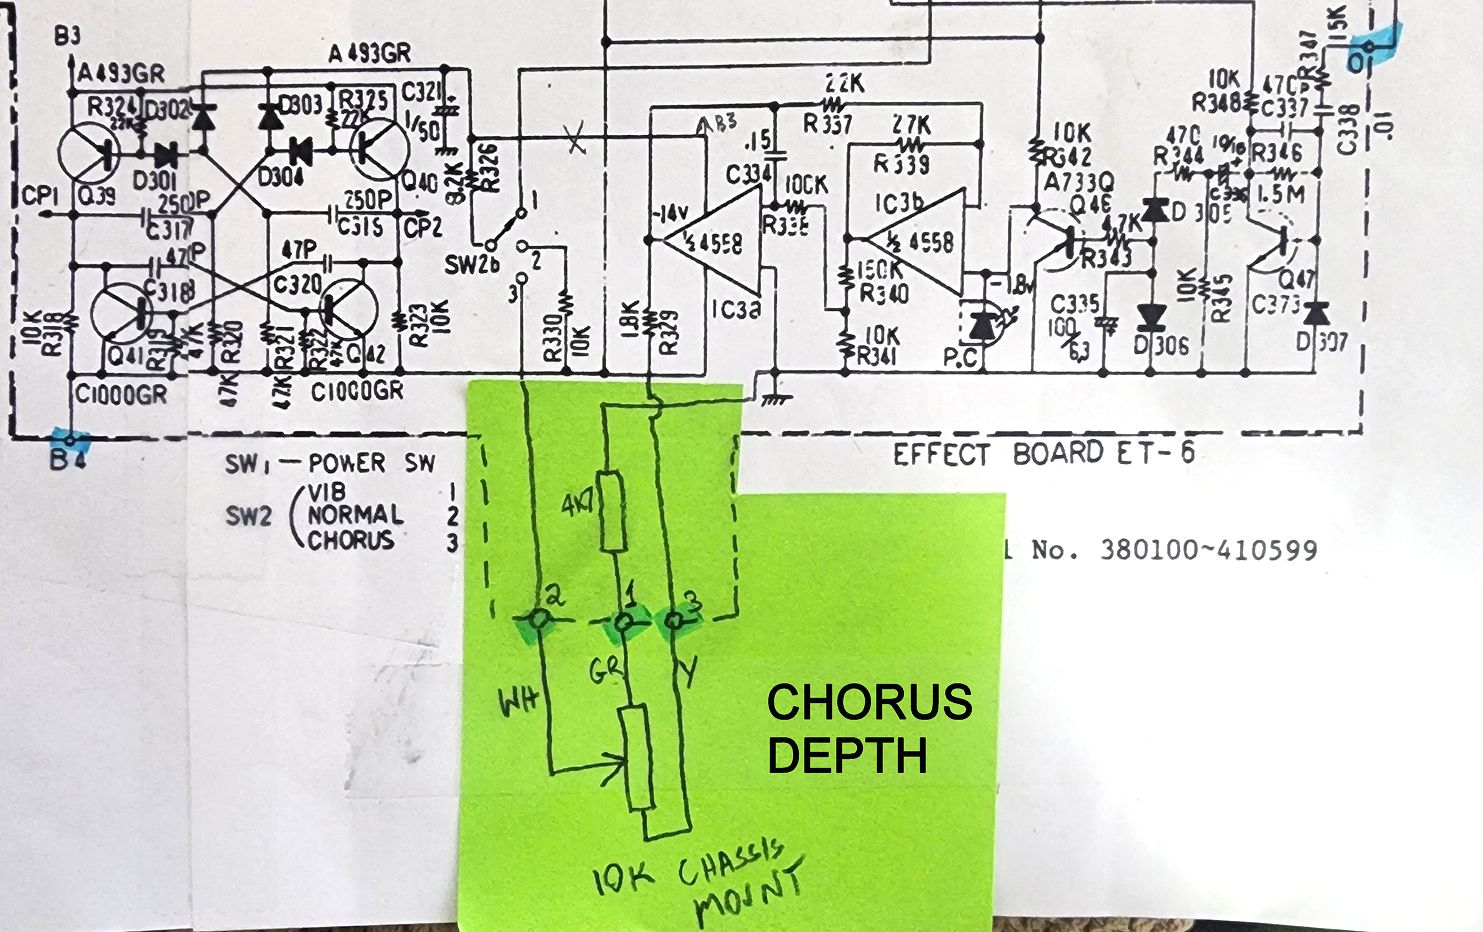 B3
A493GR
A493GR
R324
22K
D302
D303
R325
22K
C321
1/50
D301
D304
Q39
Q40
CP1
250P
C317
250P
C315
CP2
47P
C318
47P
C320
10K
R318
Q41
R319
47K
R320
47K
R321
47K
R322
47K
Q42
R323
10K
C1000GR
C1000GR
B4
8.2K
R326
SW2b
1
2
3
R330
10K
B3
22K
R337
.15
C334
100K
-14v
½ 4558
IC3a
1.8K
R329
27K
R339
IC3b
½ 4558
150K
R340
10K
R341
-1.8v
P.C
10K
R342
A733Q
Q46
4.7K
R343
C335
100
6.3
D306
470
R344
D305
10/16
10K
R345
10K
R348
470P
C337
R346
1.5M
Q47
C373
D307
R347
15K
C338
.01
O
EFFECT BOARD ET-6
SW1 — POWER SW
SW2
VIB 1
NORMAL 2
CHORUS 3
No. 380100~410599
4K7
2
1
3
WH
GR
Y
CHORUS
DEPTH
10K CHASSIS
MOUNT